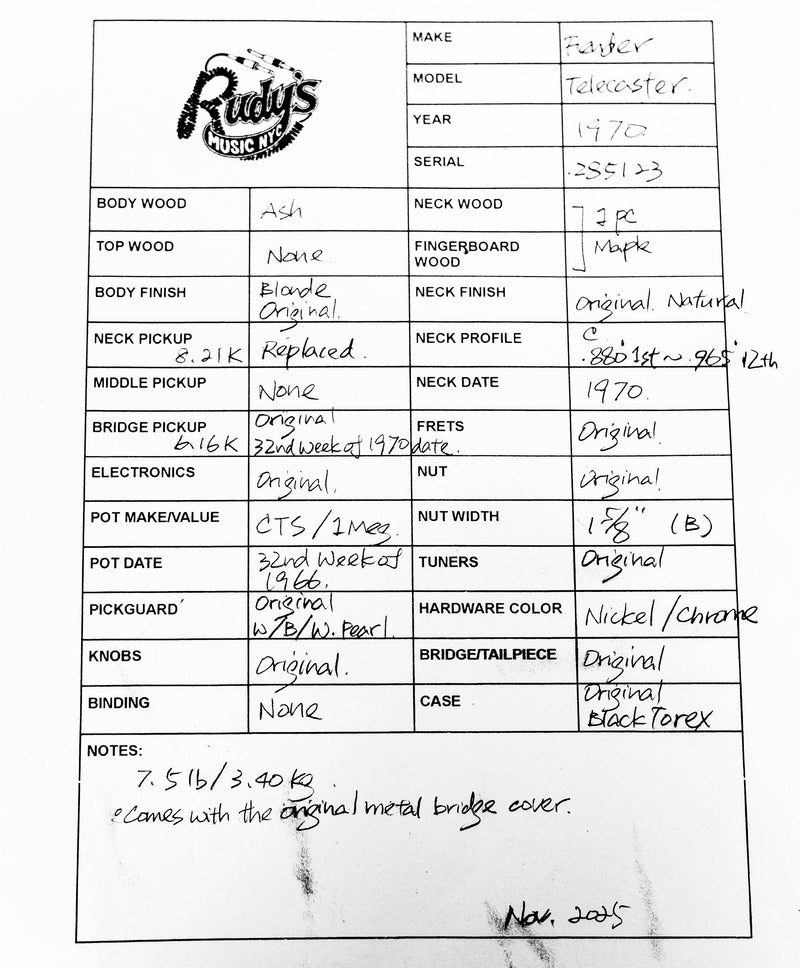 Rudy's
MUSIC NYC
MAKE Fender
MODEL Telecaster.
YEAR 1970
SERIAL 285123
BODY WOOD Ash
NECK WOOD 1 pc
TOP WOOD None
FINGERBOARD WOOD Maple
BODY FINISH Blonde Original.
NECK FINISH Original. Natural
NECK PICKUP 8.21K Replaced.
NECK PROFILE C .880" 1st ~ .965" 12th
MIDDLE PICKUP None
NECK DATE 1970.
BRIDGE PICKUP 6.16K Original 32nd week of 1970 date.
FRETS Original.
ELECTRONICS Original.
NUT Original.
POT MAKE/VALUE CTS / 1 Meg.
NUT WIDTH 1 5/8" (B)
POT DATE 32nd Week of 1966.
TUNERS Original
PICKGUARD Original W/B/W. Pearl.
HARDWARE COLOR Nickel / Chrome
KNOBS Original.
BRIDGE/TAILPIECE Original
BINDING None
CASE Original Black Torex
NOTES:
7.5 lb / 3.40 kg.
° Comes with the original metal bridge cover.
Nov. 2025